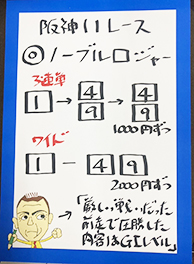 阪神11レース
◎ノーブルロジャー
3連単
1→4 9→4 9
1000円ずつ
ワイド
1-4 9
2000円ずつ
→「厳しい戦いだった
前走で圧勝した
内容はGIレベル」